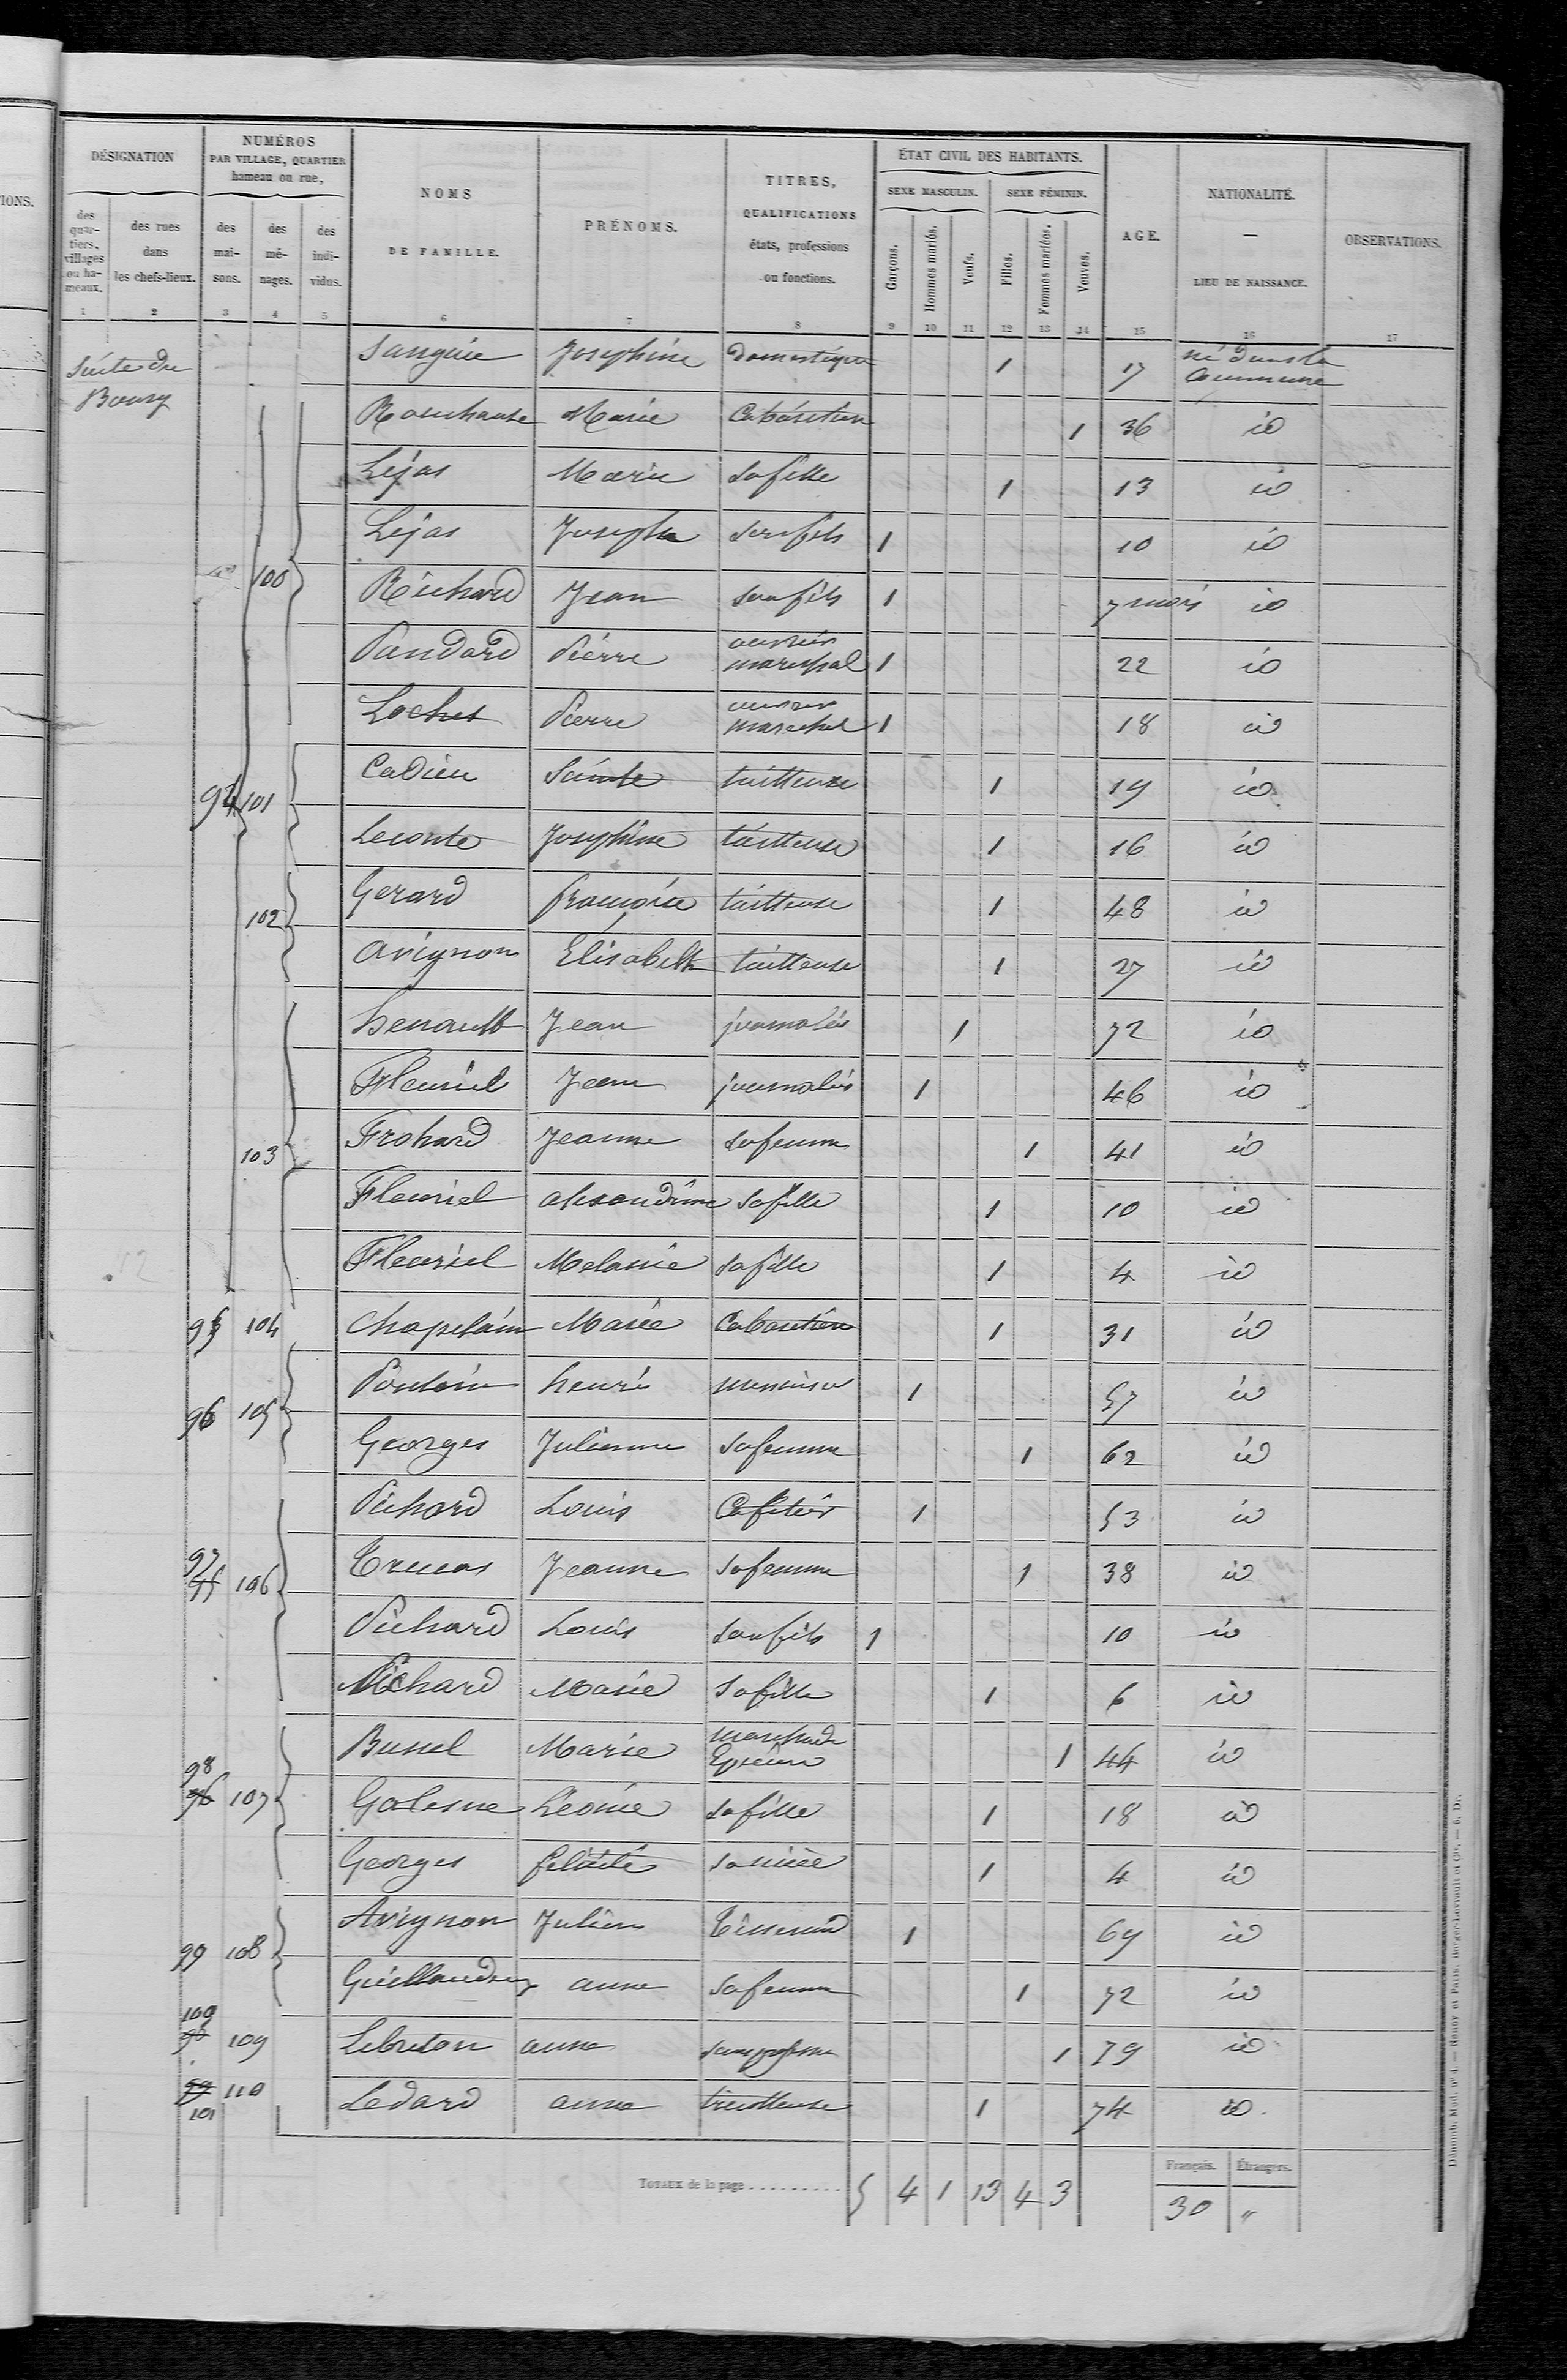 IONS.
DÉSIGNATION
NUMÉROS
PAR VILLAGE, QUARTIER
hameau ou rue,
des quar-tiers, villages ou ha-meaux.
des rues dans les chefs-lieux.
des mai-sons.
des mé-nages.
des indi-vidus.
NOMS DE FAMILLE.
PRÉNOMS.
TITRES, QUALIFICATIONS états, professions ou fonctions.
ÉTAT CIVIL DES HABITANTS.
SEXE MASCULIN. SEXE FÉMININ.
Garçons. Hommes mariés. Veufs. Filles. Femmes mariées. Veuves.
AGE.
NATIONALITÉ. — LIEU DE NAISSANCE.
OBSERVATIONS.
1 2 3 4 5 6 7 8 9 10 11 12 13 14 15 16 17
Suite du Bourg
Josephine Domestique 1 17 né dans la Commune
Marie 1 36 id
Lejas Marie sa fille 1 13 id
Lejas Joseph son fils 1 10 id
100 Richard Jean son fils 1 7 mois id
Pandard Pierre ouvrier marechal 1 22 id
Loches Pierre ouvrier marechal 1 18 id
94 101 Cadieu Sainte tailleuse 1 19 id
Leconte Josephine tailleuse 1 16 id
102 Gerard françoise tailleuse 1 48 id
Avignon Elisabeth tailleuse 1 27 id
henault Jean journalier 1 72 id
Fleuriel Jean journalier 1 46 id
103 Frohard Jeanne sa femme 1 41 id
Fleuriel alexandrine sa fille 1 10 id
Fleuriel Melanie sa fille 1 4 id
95 104 Chapelain Marie 1 31 id
96 105 Poulain henri menuisier 1 57 id
Georges Julienne sa femme 1 62 id
Pichard Louis Cafetier 1 53 id
97 106 Jeanne sa femme 1 38 id
Pichard Louis son fils 1 10 id
Pichard Marie sa fille 1 6 id
Bunel Marie marchande Epicière 1 44 id
98 96 107 Galesne Léonie sa fille 1 18 id
Georges felicité sa nièce 1 4 id
Avignon Julien Tisserand 1 69 id
99 108 Guillaudeux anne sa femme 1 72 id
100 98 109 Lebreton anna 1 79 id
99 101 110 Ledard anna tricotteuse 1 74 id
TOTAUX de la page 5 4 1 13 4 3
Français. Étrangers.
30 "